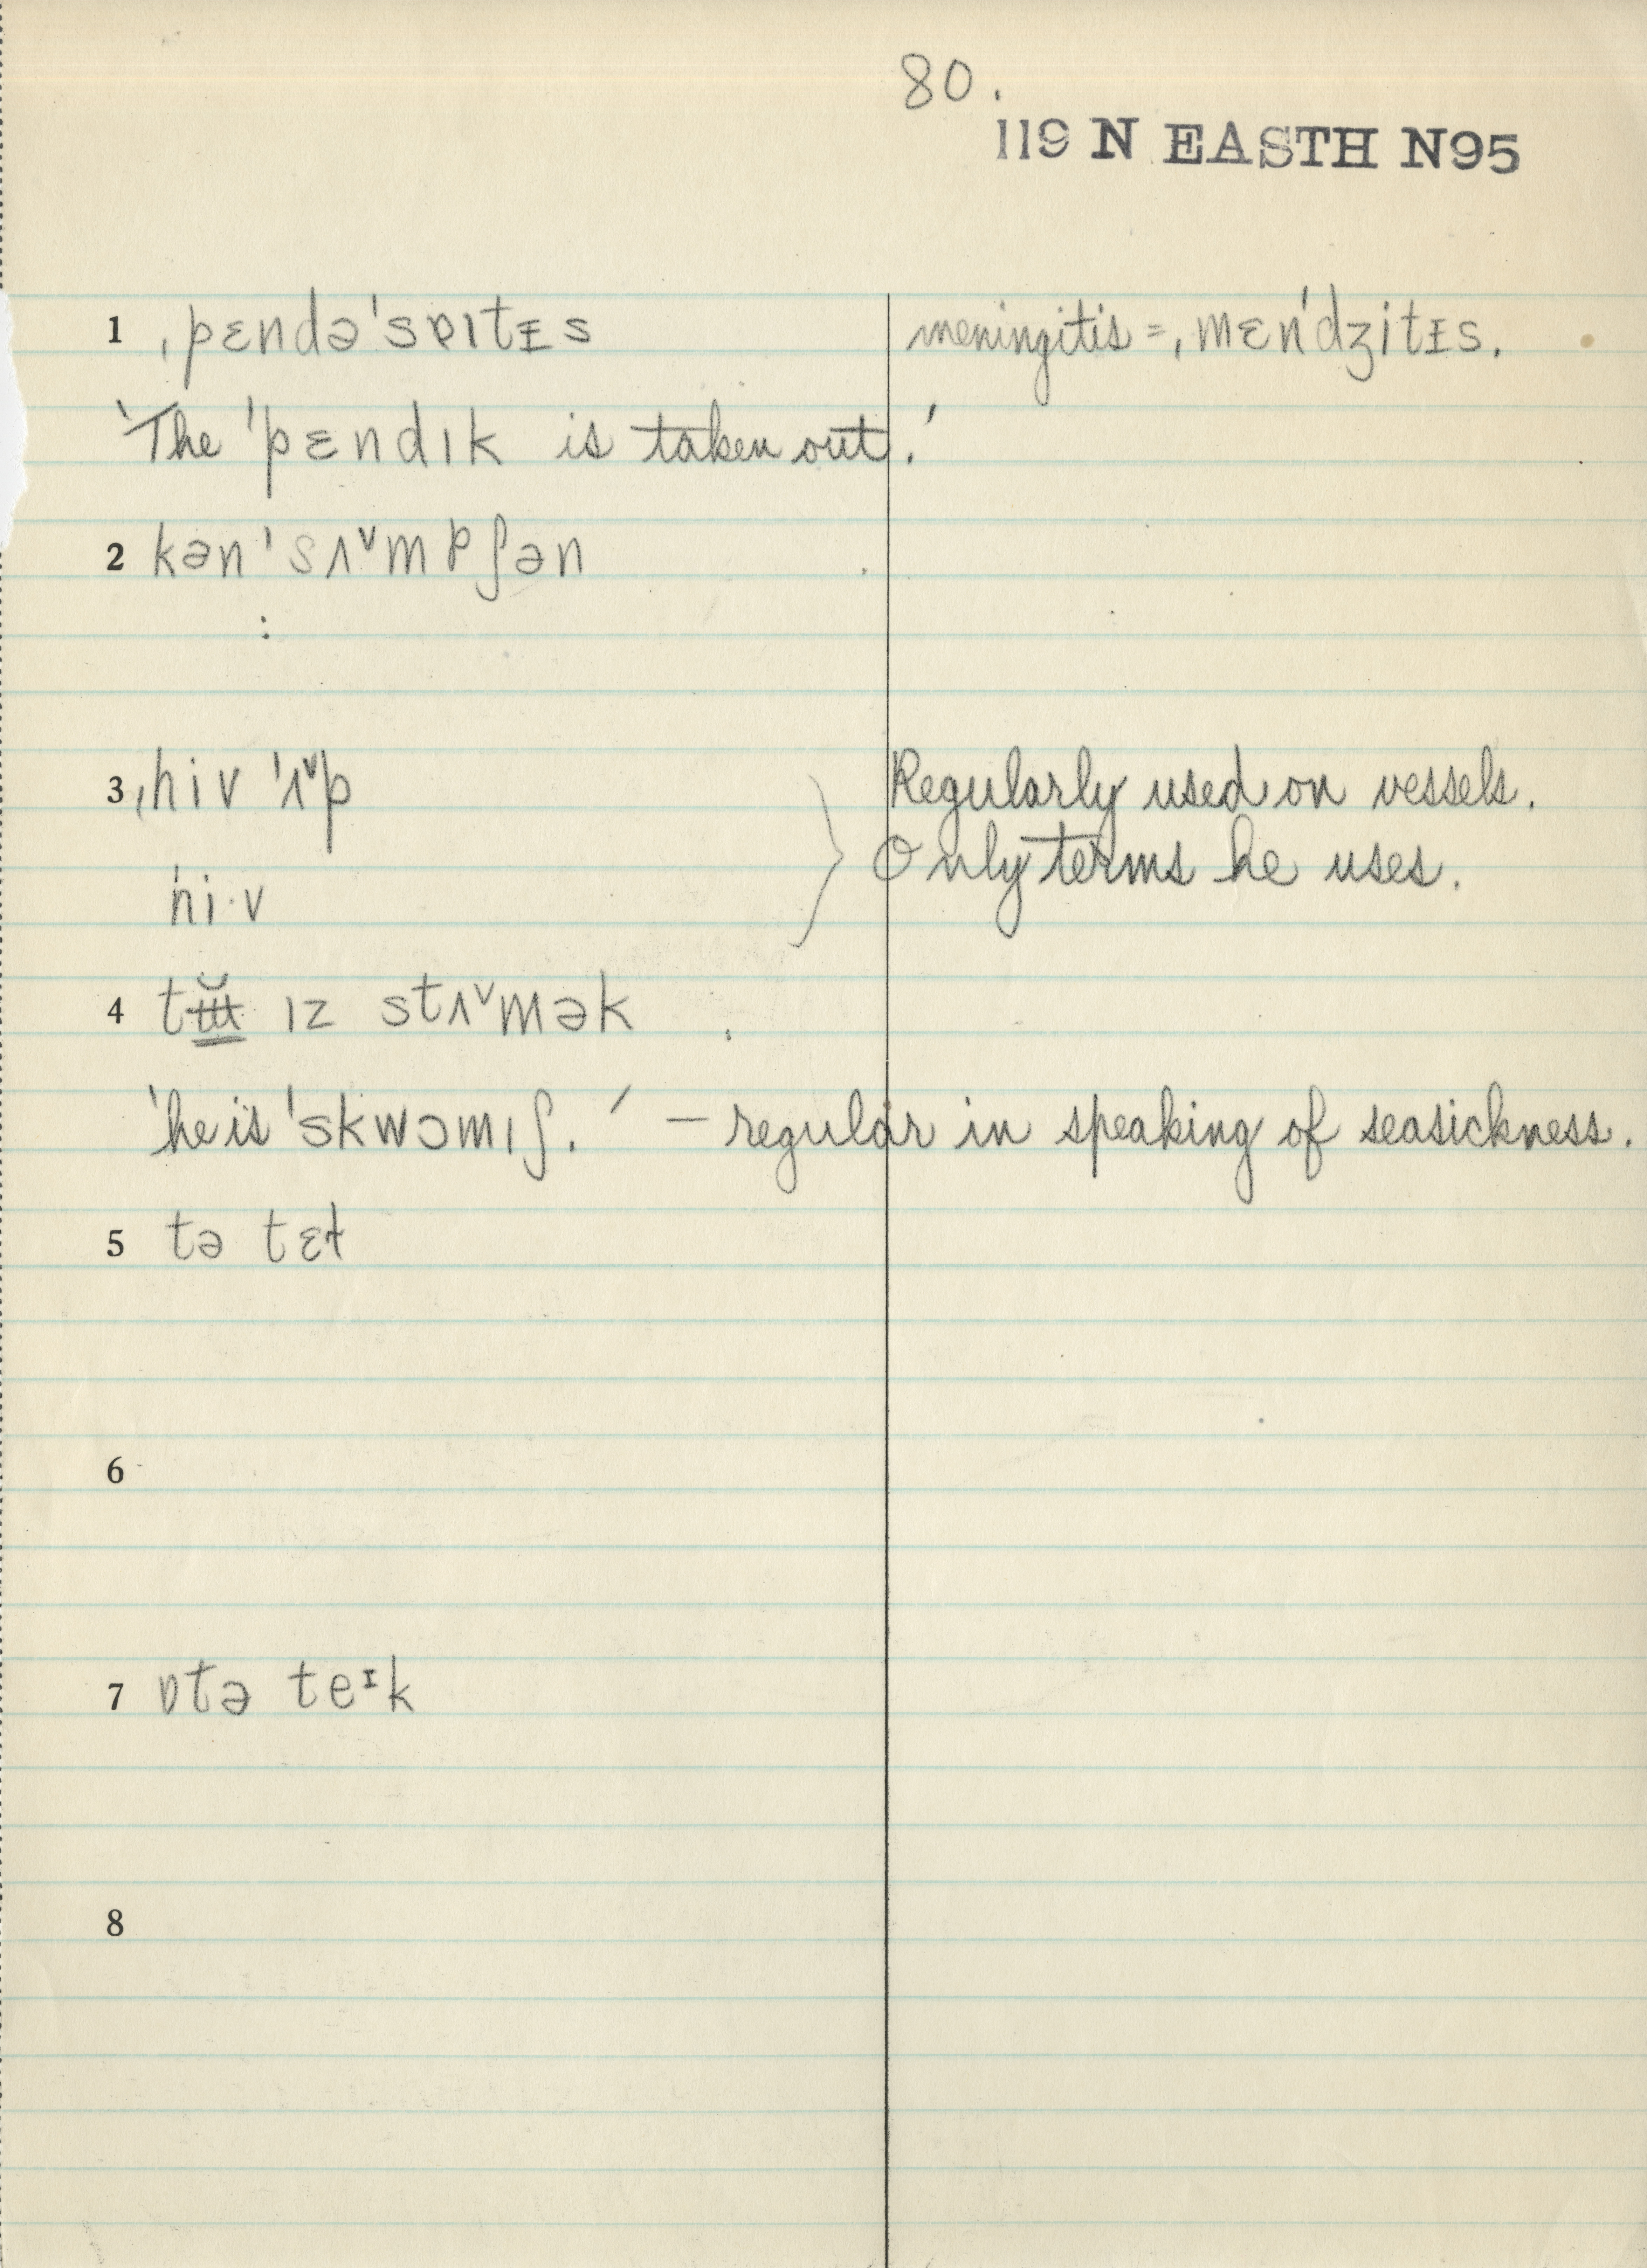 80.
119 N EASTH N95
1 ˌpɛndəˈsɐɪtɪs meningitis = ˌmɛnˈdʒitɪs.
‘The ˈpɛndɪk is taken out.’
2 kənˈsʌˇmpʃən
:
3 ˌhiv ˈʌˇp Regularly used on vessels.
ˈhi·v Only terms he uses.
4 ɪz stʌˇmək
‘he is ˈskwɔmɪʃ.’ – regular in speaking of seasickness.
5 tə tɛɫ
6
7 ɒtə teᶦk
8